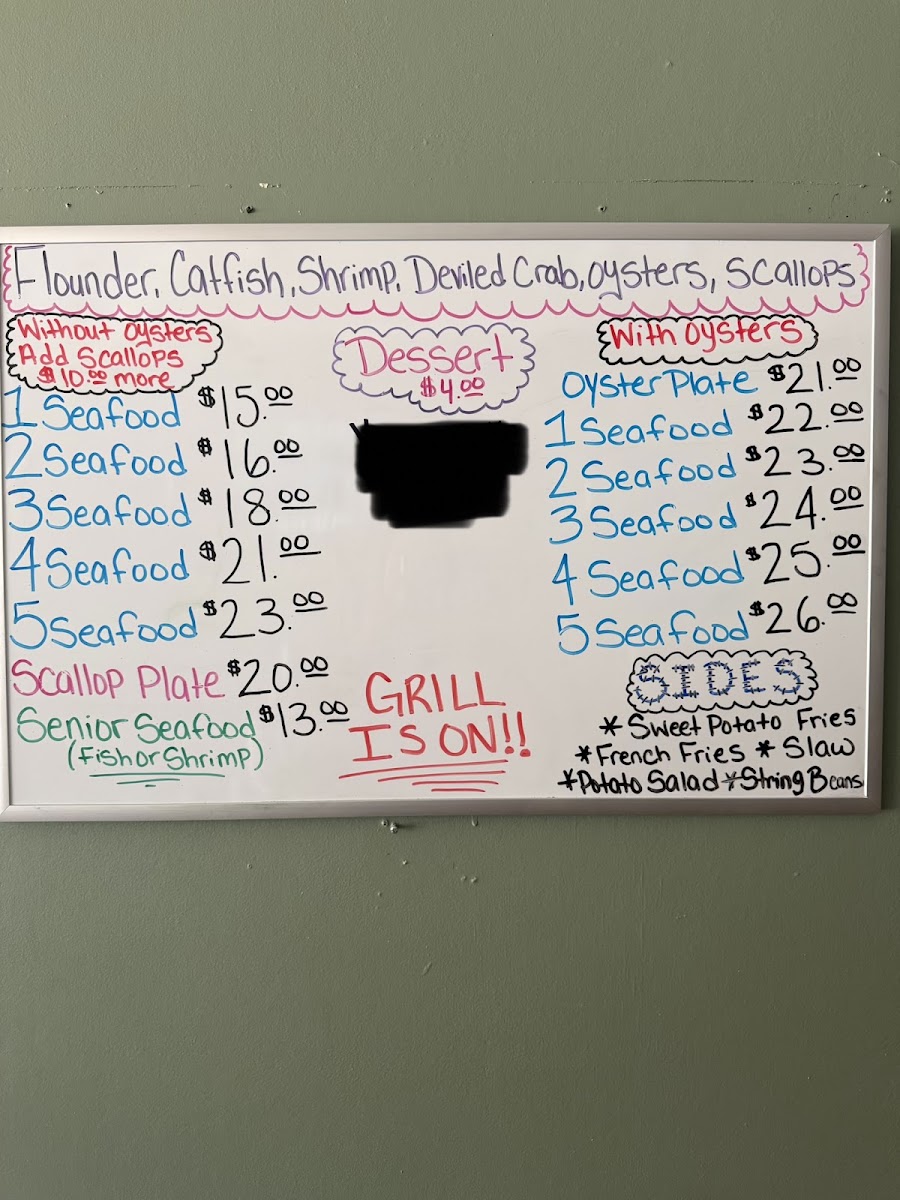 Flounder, Catfish, Shrimp, Deviled Crab, oysters, Scallops
Without oysters
Add Scallops
$10.00 more
1 Seafood $15.00
2 Seafood $16.00
3 Seafood $18.00
4 Seafood $21.00
5 Seafood $23.00
Scallop Plate $20.00
Senior Seafood $13.00
(Fish or Shrimp)
Dessert
$4.00
GRILL
IS ON!!
With oysters
Oyster Plate $21.00
1 Seafood $22.00
2 Seafood $23.00
3 Seafood $24.00
4 Seafood $25.00
5 Seafood $26.00
SIDES
* Sweet Potato Fries
* French Fries * Slaw
* Potato Salad * String Beans